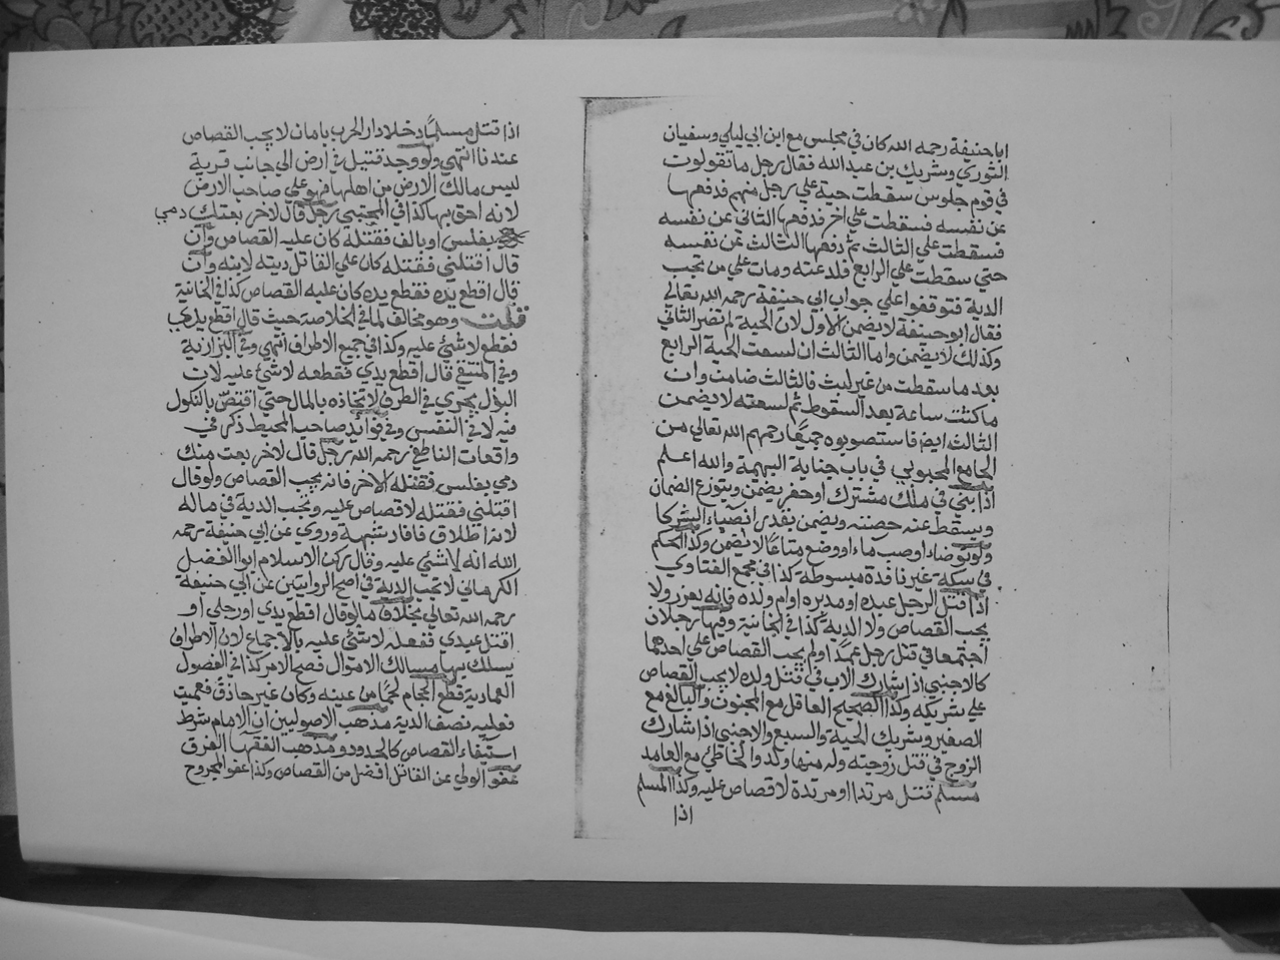 ابا حنيفة رحمه الله كان في مجلس مع ابن ابي ليلي وسفيان
الثوري وشريك بن عبد الله فقال رجل ما تقولوت
في قوم جلوس سقطت حية علي رجل منهم فدفعها
عن نفسه فسقطت علي اخر فدفعها الثاني عن نفسه
فسقطت علي الثالث ثم دفعها الثالث عن نفسه
حتي سقطت علي الرابع فلدغته ومات علي من تجب
الدية فتوقفوا علي جواب ابي حنيفة رحمه الله تعالي
فقال ابو حنيفة لا يضمن الاول لان الحية لم تضر الثاني
وكذلك لا يضمن واما الثالث ان لسعت الحية الرابع
بعد ما سقطت من غير لبث فالثالث ضامن وان
مكثت ساعة بعد السقوط ثم لسعته لا يضمن
الثالث ايضا فاستصوبوه جميعا رحمهم الله تعالي من
الجامع المحبوبي في باب جناية البهيمة والله اعلم
اذا بني في ملك مشترك او حفر يضمن ويتوزع الضمان
ويسقط عنه حصته ويضمن بقدر انصباء الشركا
ولو توضا او صب ماء او وضع متاعا لا يضمن وكذا الحكم
في سكة غير نافدة مبسوطة كذا في مجمع الفتاوي
اذا قتل الرجل عبده او مدبره او ام ولده فانه يعزر ولا
يجب القصاص ولا الدية كذا في الخانية وفيها رجلان
اجتمعا في قتل رجل عمدا ولم يجب القصاص علي احدهما
كالاجنبي اذا شارك الاب في قتل ولده لا يجب القصاص
علي شريكه وكذا الصحيح العاقل مع المجنون والبالغ مع
الصغير وشريك الحية والسبع والاجنبي اذا شارك
الزوج في قتل زوجته وله منها ولد والخاطئ مع العامد
مسلم قتل مرتدا او مرتدة لا قصاص عليه وكذا المسلم
اذا
اذا قتل مسلما دخلا دار الحرب بامان لا يجب القصاص
عندنا انتهي ولو وجد قتيل في ارض الي جانب قرية
ليس مالك الارض من اهلها فهو علي صاحب الارض
لانه احق بها كذا في المجتبي رجل قال لاخر بعتك دمي
بفلس او بالف فقتله كان عليه القصاص وان
قال اقتلني فقتله كان علي القاتل ديته لابنه وان
قال اقطع يده فقطع يده كان عليه القصاص كذا في الخانية
قلت وهو مخالف لما في الخلاصة حيث قال اقطع يدي
فقطع لا شئ عليه وكذا في جميع الاطراف انتهي وفي البزازية
وفي المنتقي قال اقطع يدي فقطعه لا شئ عليه لان
البذل يجري في الطرف لاتخاذه بالمال حتي اقتص بالنكول
فيه لا في النفس وفي فوائد صاحب المحيط ذكر في
واقعات الناطفي رحمه الله رجل قال لاخر بعت منك
دمي بفلس فقتله الاخر فانه يجب القصاص ولو قال
اقتلني فقتله لا قصاص عليه وتجب الدية في ماله
لانه اطلاق فافاد شبهة وروي عن ابي حنيفة رحمه
الله انه لا شئ عليه وقال ركن الاسلام ابو الفضل
الكرماني لا تجب الدية في اصح الروايتين عن ابي حنيفة
رحمه الله تعالي بخلاف ما لو قال اقطع يدي او رجلي او
اقتل عبدي ففعله لا شئ عليه بالاجماع لان الاطراف
يسلك بها مسالك الاموال فصح الامر كذا في الفصول
العمادية قطع الحجام لحما من عينه وكان غير حاذق فعميت
فعليه نصف الدية مذهب الاصوليين ان الامام شرط
استيفاء القصاص كالحدود ومذهب الفقها الفرق
عفو الولي عن القاتل افضل من القصاص وكذا عفو المجروح